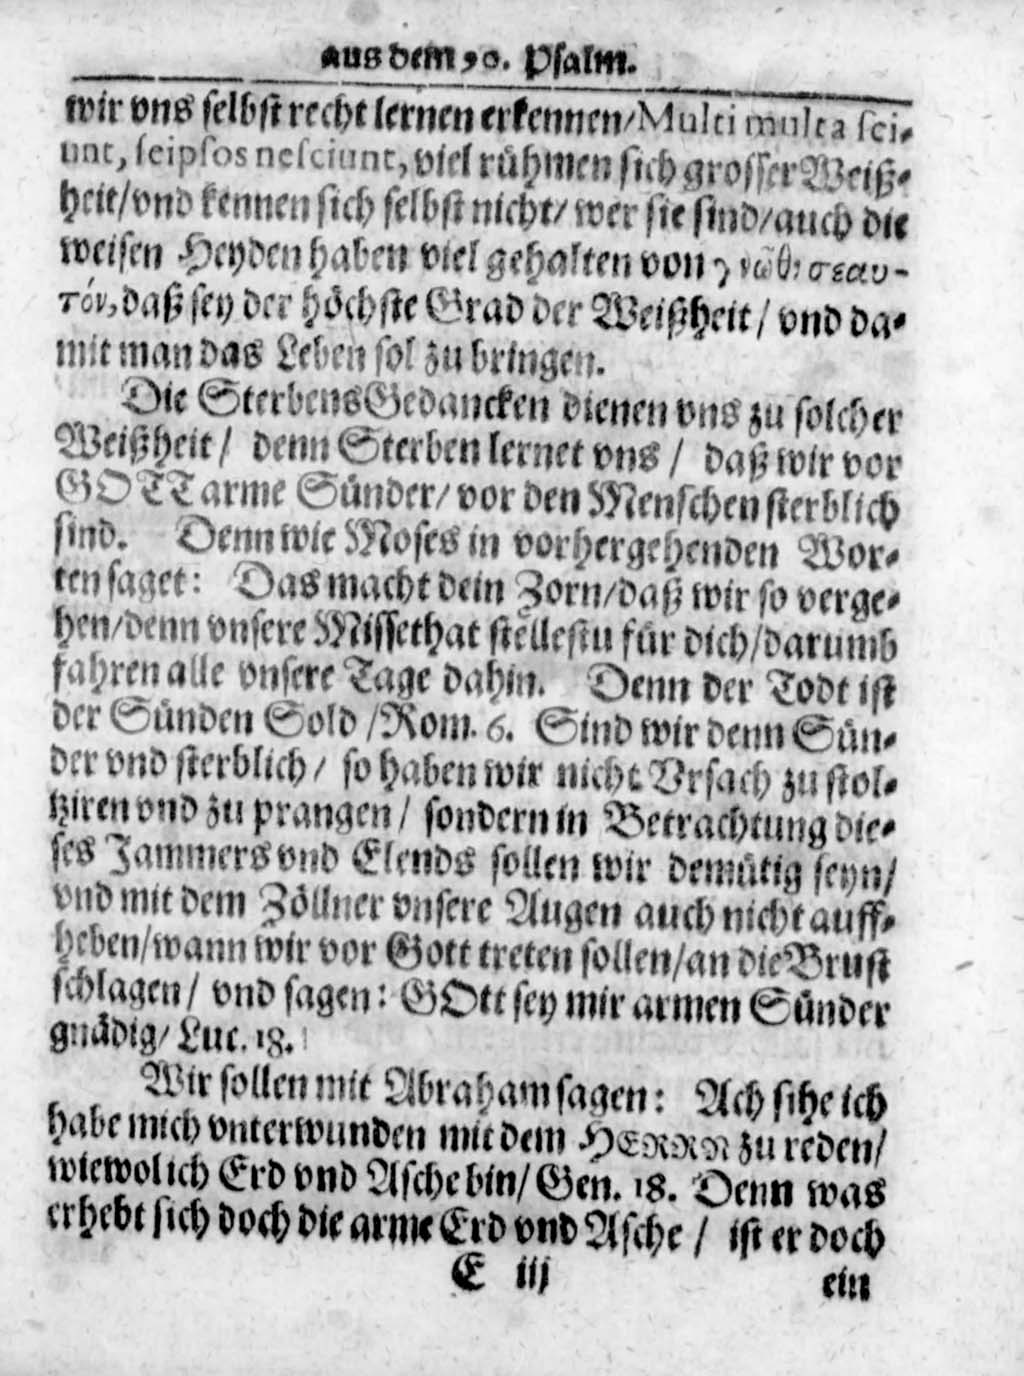 aus dem 90. Psalm.
wir vns selbst recht lernen erkennen/Multi multa sci-
unt, seipsos nesciunt, viel rühmen sich grosser Weiß-
heit/vnd kennen sich selbst nicht/ wer sie sind/auch die
weisen Heyden haben viel gehalten von γνῶθι σεαυ-
τόν, daß sey der höchste Grad der Weißheit / vnd da-
mit man das Leben sol zu bringen.
Die SterbensGedancken dienen vns zu solcher
Weißheit / denn Sterben lernet vns / daß wir vor
GOTT arme Sünder/ vor den Menschen sterblich
sind. Denn wie Moses in vorhergehenden Wor-
ten saget: Das macht dein Zorn/daß wir so verge-
hen/denn vnsere Missethat stellestu für dich/darumb
fahren alle vnsere Tage dahin. Denn der Todt ist
der Sünden Sold /Rom. 6. Sind wir denn Sün-
der vnd sterblich / so haben wir nicht Vrsach zu stol-
tziren vnd zu prangen / sondern in Betrachtung die-
ses Jammers vnd Elends sollen wir demütig seyn/
vnd mit dem Zöllner vnsere Augen auch nicht auff-
heben/wann wir vor Gott treten sollen/an die Brust
schlagen / vnd sagen: GOtt sey mir armen Sünder
gnädig/ Luc. 18.
Wir sollen mit Abraham sagen: Ach sihe ich
habe mich vnterwunden mit dem HERRN zu reden/
wiewol ich Erd vnd Asche bin/ Gen. 18. Denn was
erhebt sich doch die arme Erd vnd Asche / ist er doch
E iij
ein